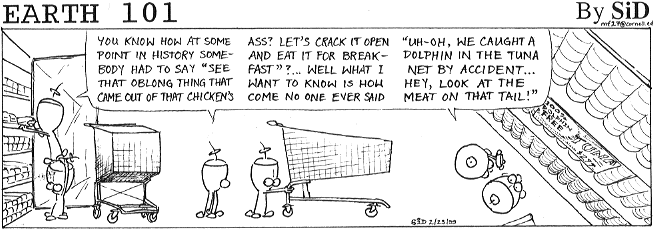 EARTH 101
By SiD
mf17@cornell.ed
YOU KNOW HOW AT SOME
POINT IN HISTORY SOME-
BODY HAD TO SAY "SEE
THAT OBLONG THING THAT
CAME OUT OF THAT CHICKEN'S
ASS? LET'S CRACK IT OPEN
AND EAT IT FOR BREAK-
FAST"?... WELL WHAT I
WANT TO KNOW IS HOW
COME NO ONE EVER SAID
"UH-OH, WE CAUGHT A
DOLPHIN IN THE TUNA
NET BY ACCIDENT...
HEY, LOOK AT THE
MEAT ON THAT TAIL!"
100%
DOLPHIN
FREE
TUNA
SiD 2/23/99